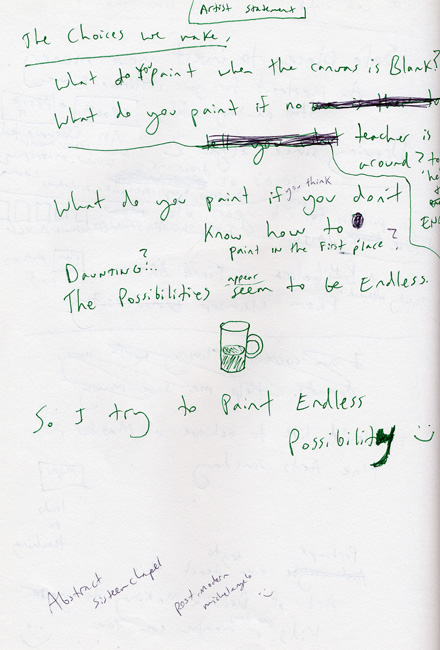 Artist Statement
The Choices we make,
What do you paint when the canvas is Blank?
What do you paint if no
teacher is
around? to
What do you paint if you think you don't
Know how to
paint in the First place?
Daunting?!..
The Possibilities appear seem to be Endless.
So I try to Paint Endless
Possibility :)
Abstract
sisteen chapel
post-modern
michelangelo
:)